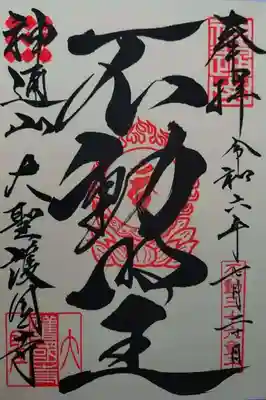 奉拝
令和六年
不動明王
神通山大聖護国寺